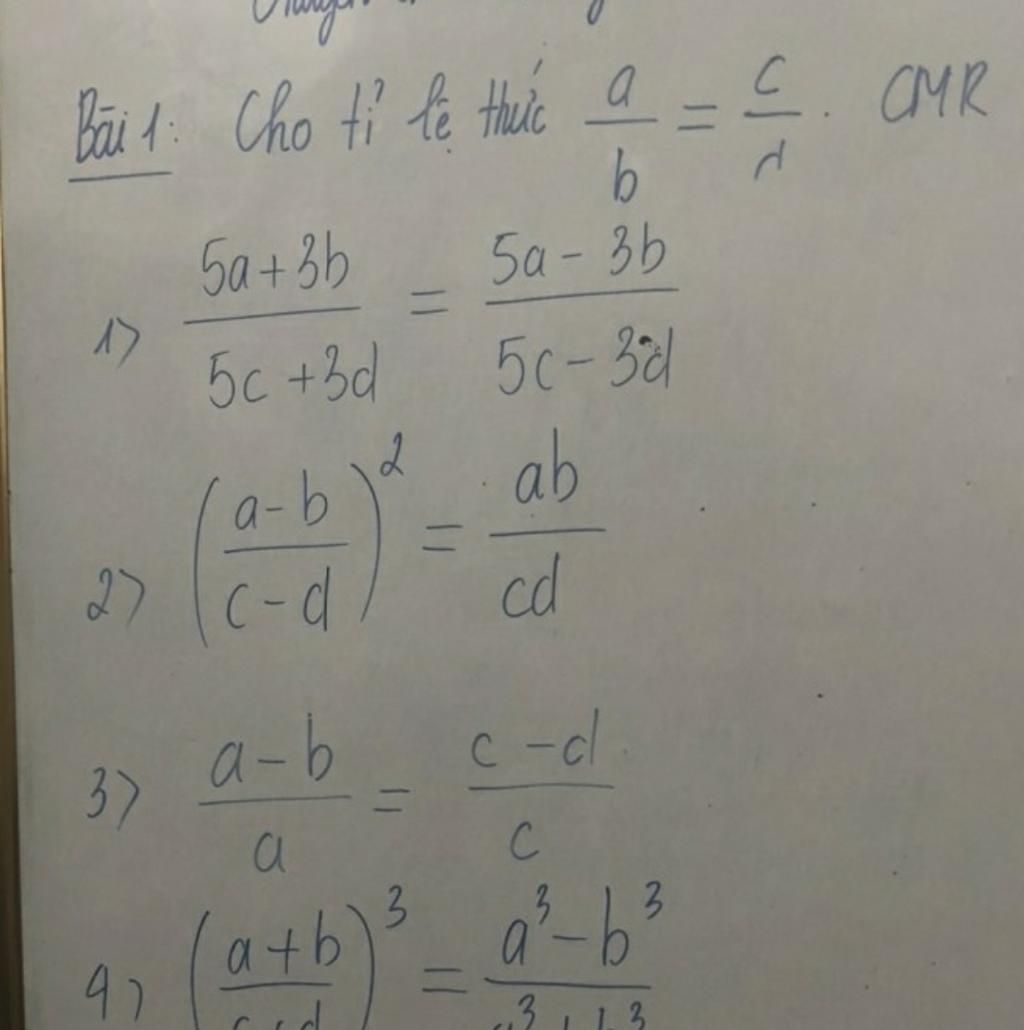 Bài 1: Cho tỉ lệ thức a/b = c/d. CMR
1) (5a+3b)/(5c+3d) = (5a-3b)/(5c-3d)
2) ((a-b)/(c-d))² = ab/cd
3) (a-b)/a = (c-d)/c
4) ((a+b)/(c+d))³ = (a³-b³)/